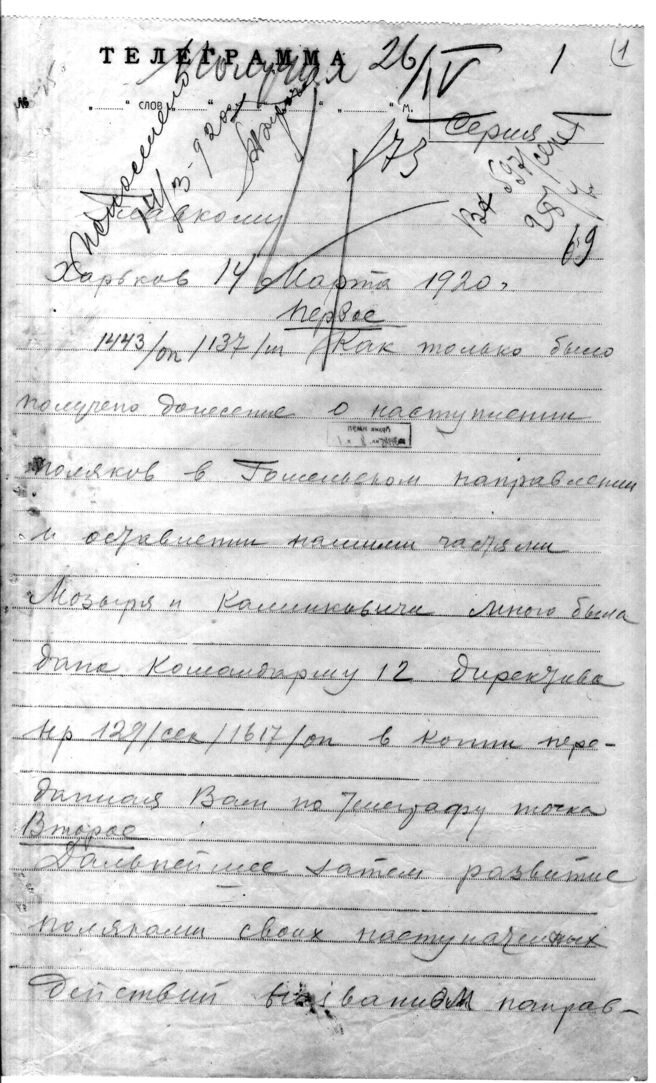 ТЕЛЕГРАММА
26/IV 1 1
№ слов м.
Серия
14/3-920
173
69
Харьков 14 Марта 1920.
Первое
1443/оп/137/ш Как только было
получено донесение о наступлении
поляков в Гомельском направлении
и оставлении нашими частями
Мозыря и Калинковичи мною была
дана Командарму 12 директива
нр 129/сек/1617/оп в копии пере-
данная Вам по телеграфу точка
Второе
Дальнейшее затем развитие
поляками своих наступательных
действий в направ-